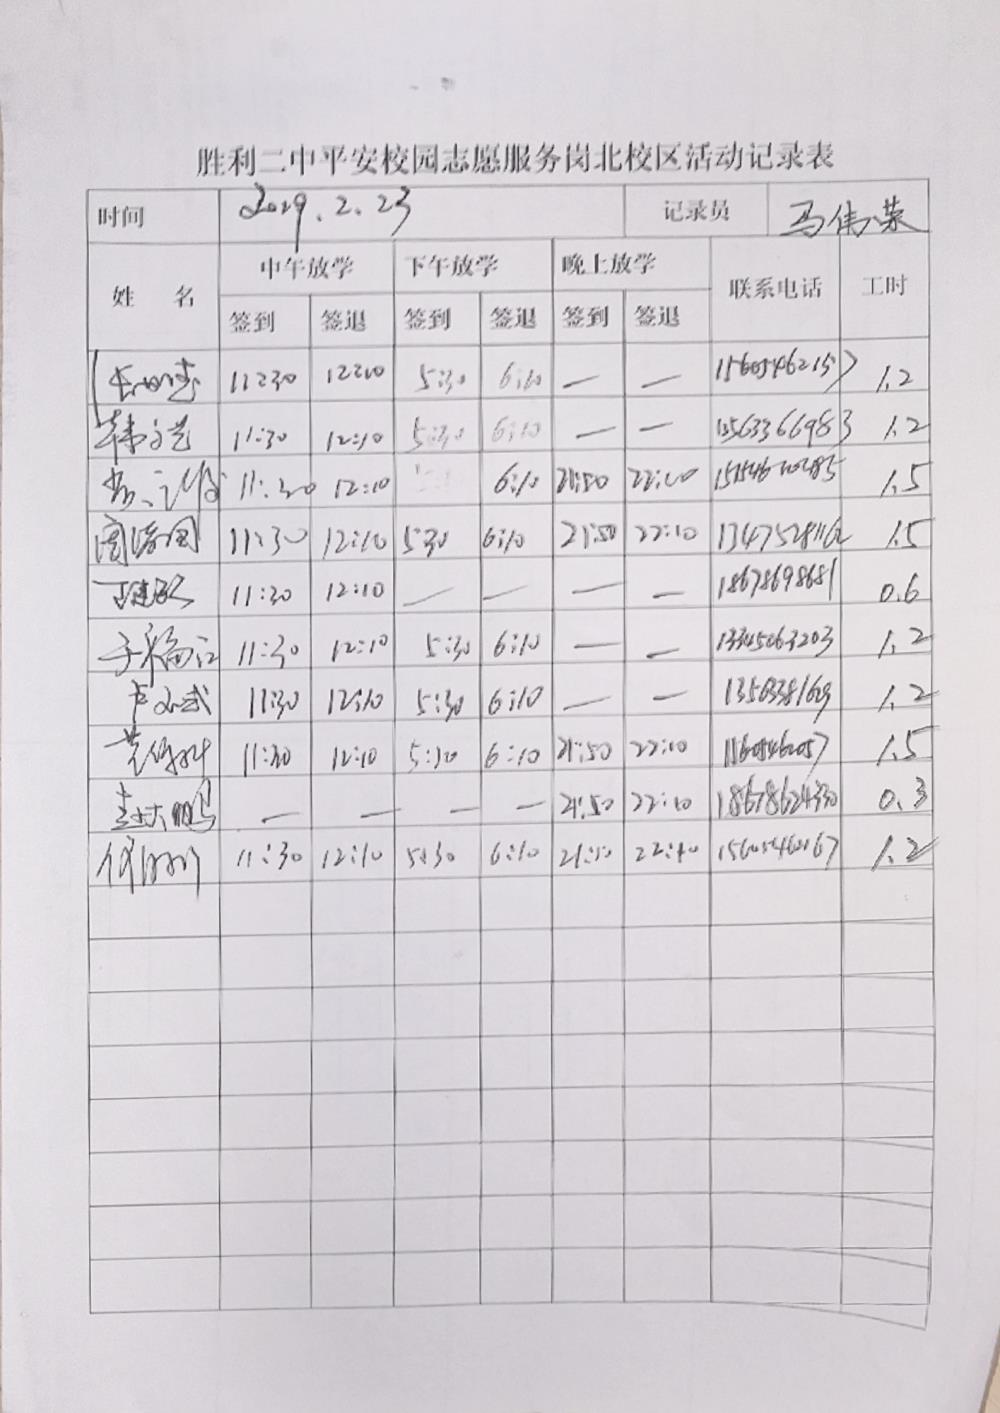 胜利二中平安校园志愿服务岗北校区活动记录表
时间 2019.2.23 记录员 马伟荣
姓 名 中午放学 下午放学 晚上放学 联系电话 工时
签到 签退 签到 签退 签到 签退
11:30 12:10 5:30 6:10 — — 15605462157 1.2
韩文艺 11:30 12:10 5:30 6:10 — — 13563366983 1.2
11:30 12:10 6:10 21:50 22:10 1.5
11:30 12:10 5:30 6:10 21:50 22:10 1.5
11:30 12:10 — — — — 18678698681 0.6
11:30 12:10 5:30 6:10 — — 13345063203 1.2
11:30 12:10 5:30 6:10 — — 1.2
11:30 12:10 5:30 6:10 21:50 22:10 1.5
— — — — 21:50 22:10 18678624330 0.3
11:30 12:10 5:30 6:10 21:50 22:10 15605460167 1.2